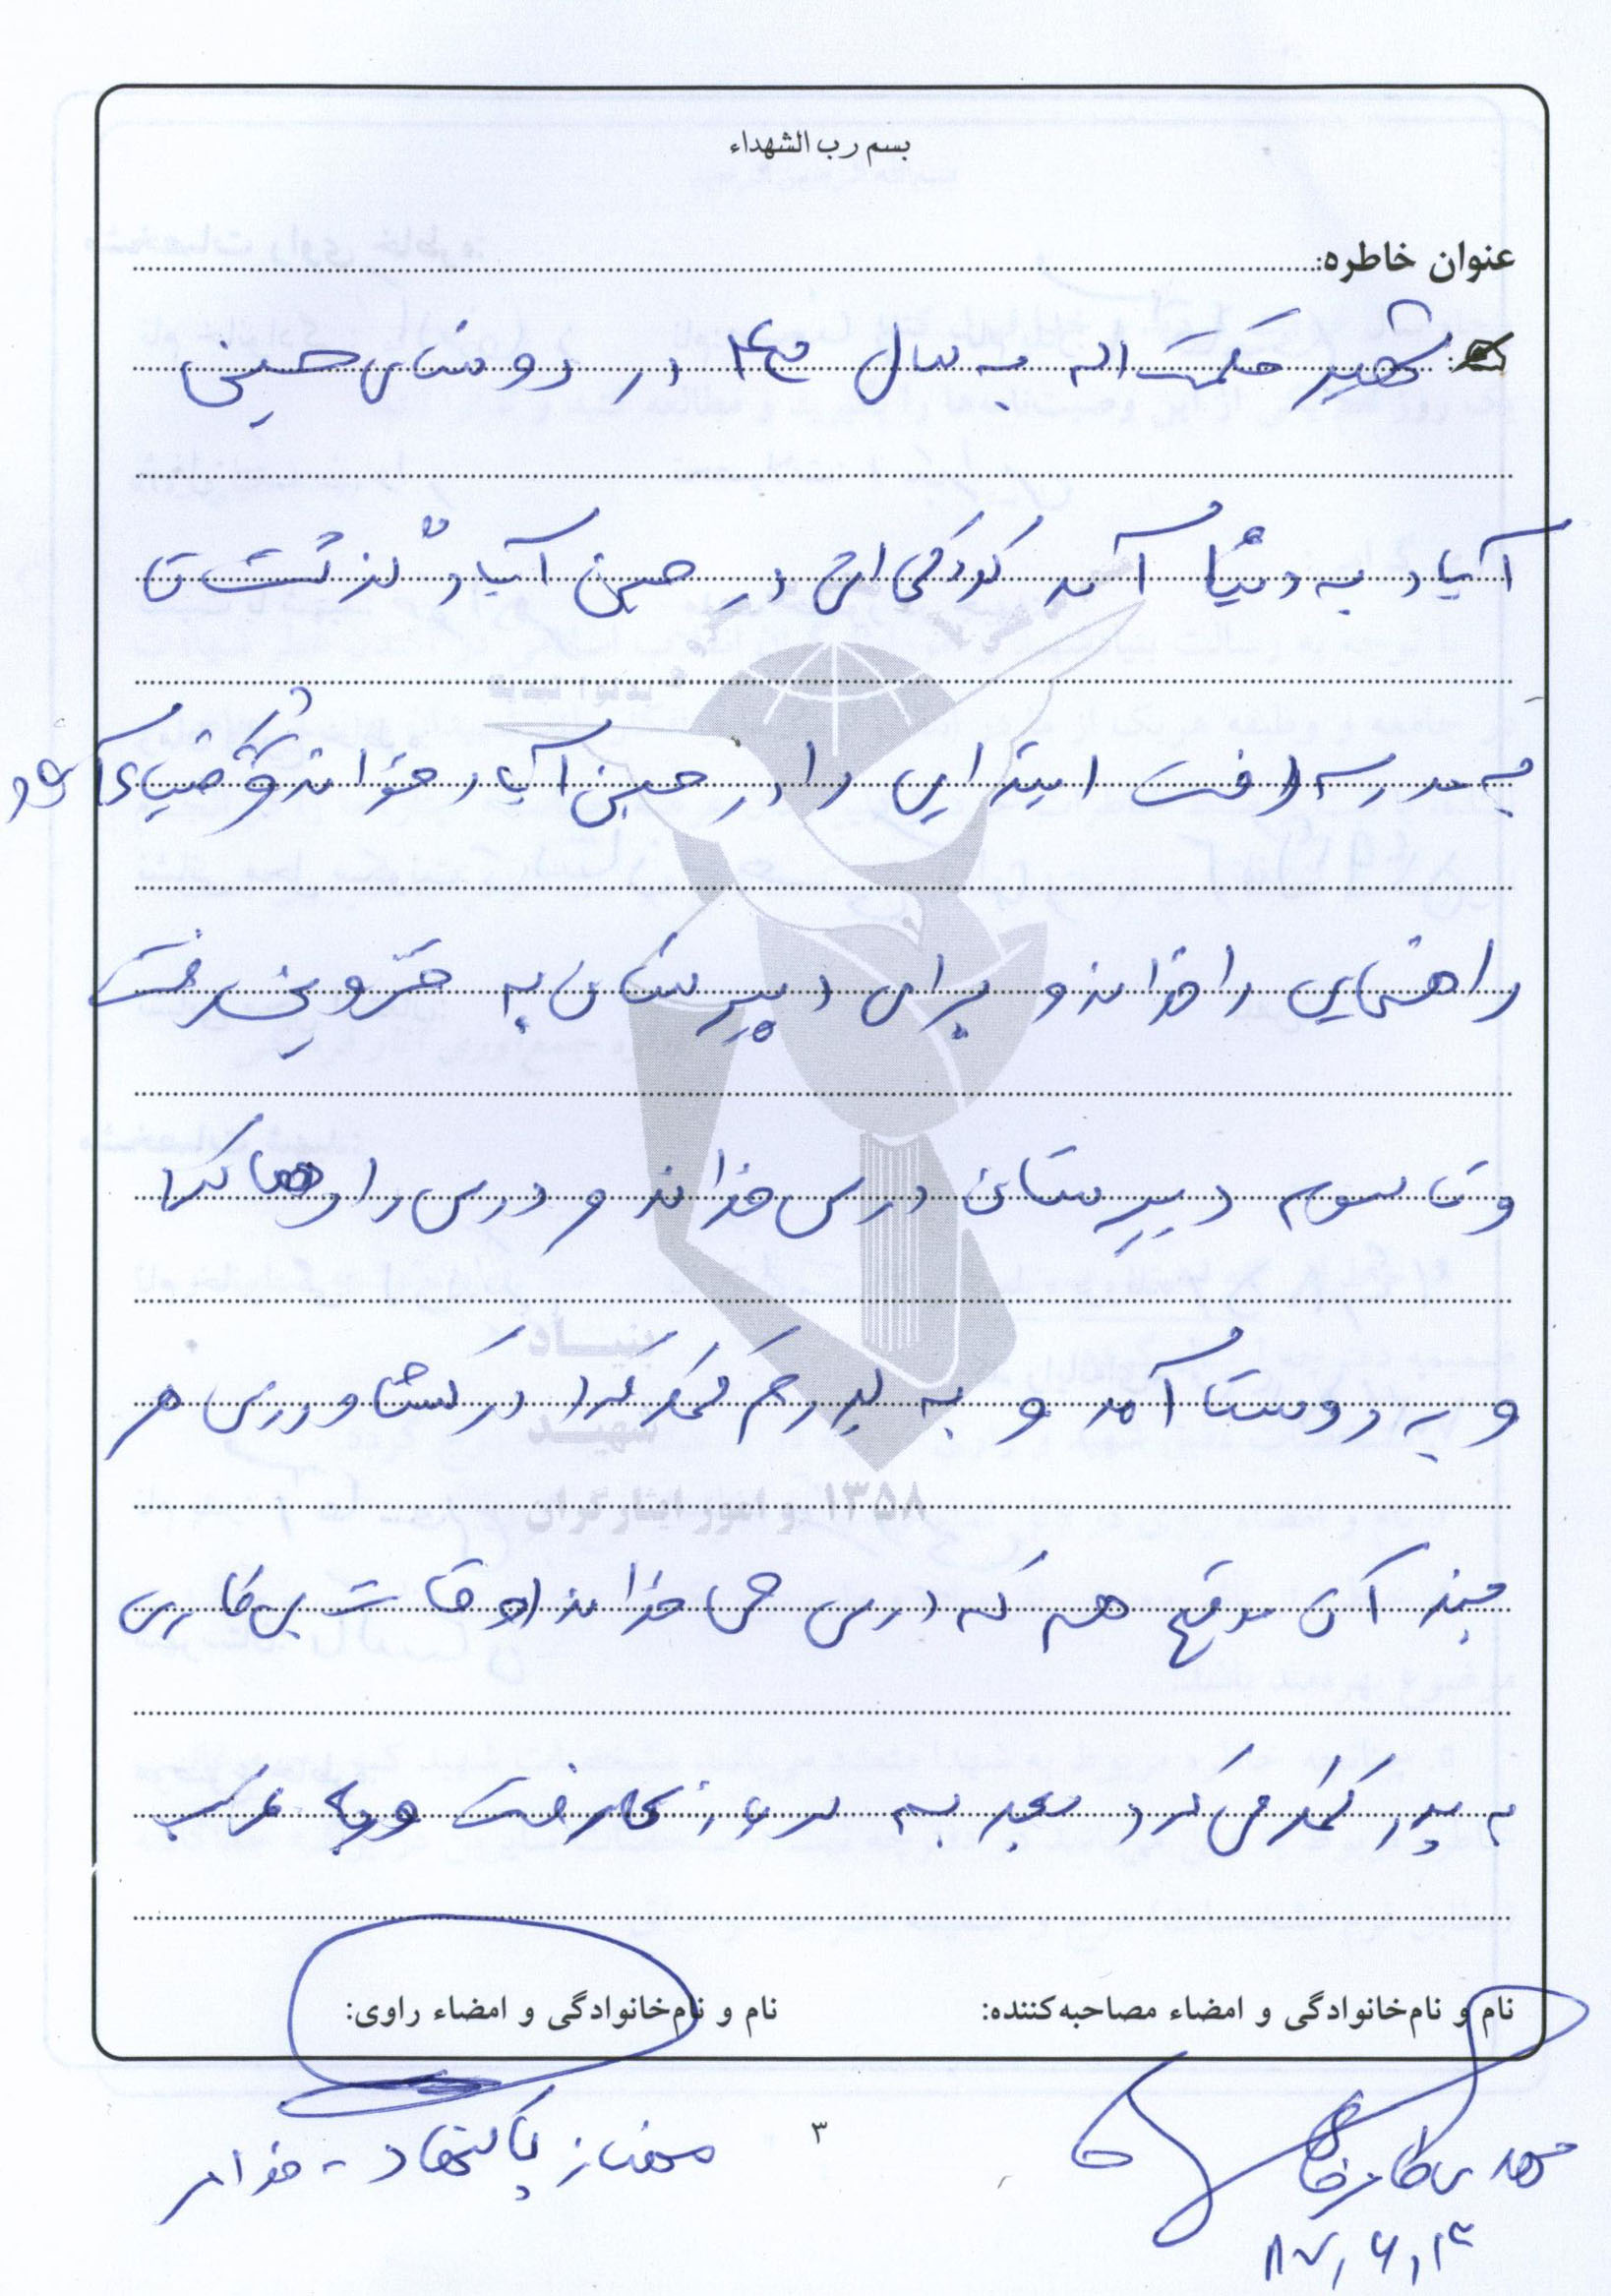 بسم رب الشهداء
عنوان خاطره:
شهید حکمت اله به سال ۱۳۴۰ در روستای حسین
آباد به دنیا آمد کودکی اش در حسین آباد گذشت تا
به مدرسه رفت ابتدایی را در حسین آباد خواند و ضیاءآباد
راهنمایی را خواند و برای دبیرستان به قزوین رفت
و تا سوم دبیرستان درس خواند و درس را رها کرد
و به روستا آمد و به پدرم کمک کرد در کشاورزی هر
چند آن موقع هم که درس می خواند اوقات بی کاری
به پدر کمک می کرد بعد به سربازی رفت و به غرب
نام و نام‌خانوادگی و امضاء مصاحبه‌کننده:
نام و نام‌خانوادگی و امضاء راوی:
مهناز پاکنهاد - خواهر
۳
بنیاد
شهید
و امور ایثارگران ۱۳۵۸